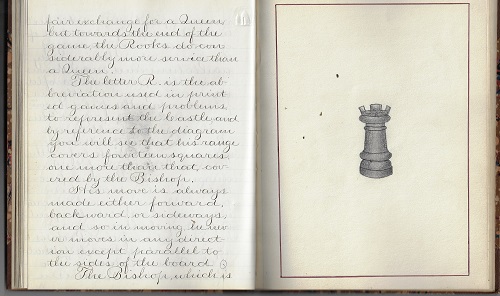 fair exchange for a Queen,
but towards the end of the
game, the Rooks do con
siderably more service than
a Queen.
The letter R. is the ab-
breviation used in print
ed games and problems
to represent the Castle, and
by reference to the diagram
you will see that his range
covers fourteen squares,
one more than that cov-
ered by the Bishop.
His move is always
made either forward,
backward, or sideways,
and so in moving he nev
er moves in any direct
ion except parallel to
the sides of the board
The Bishop, which is